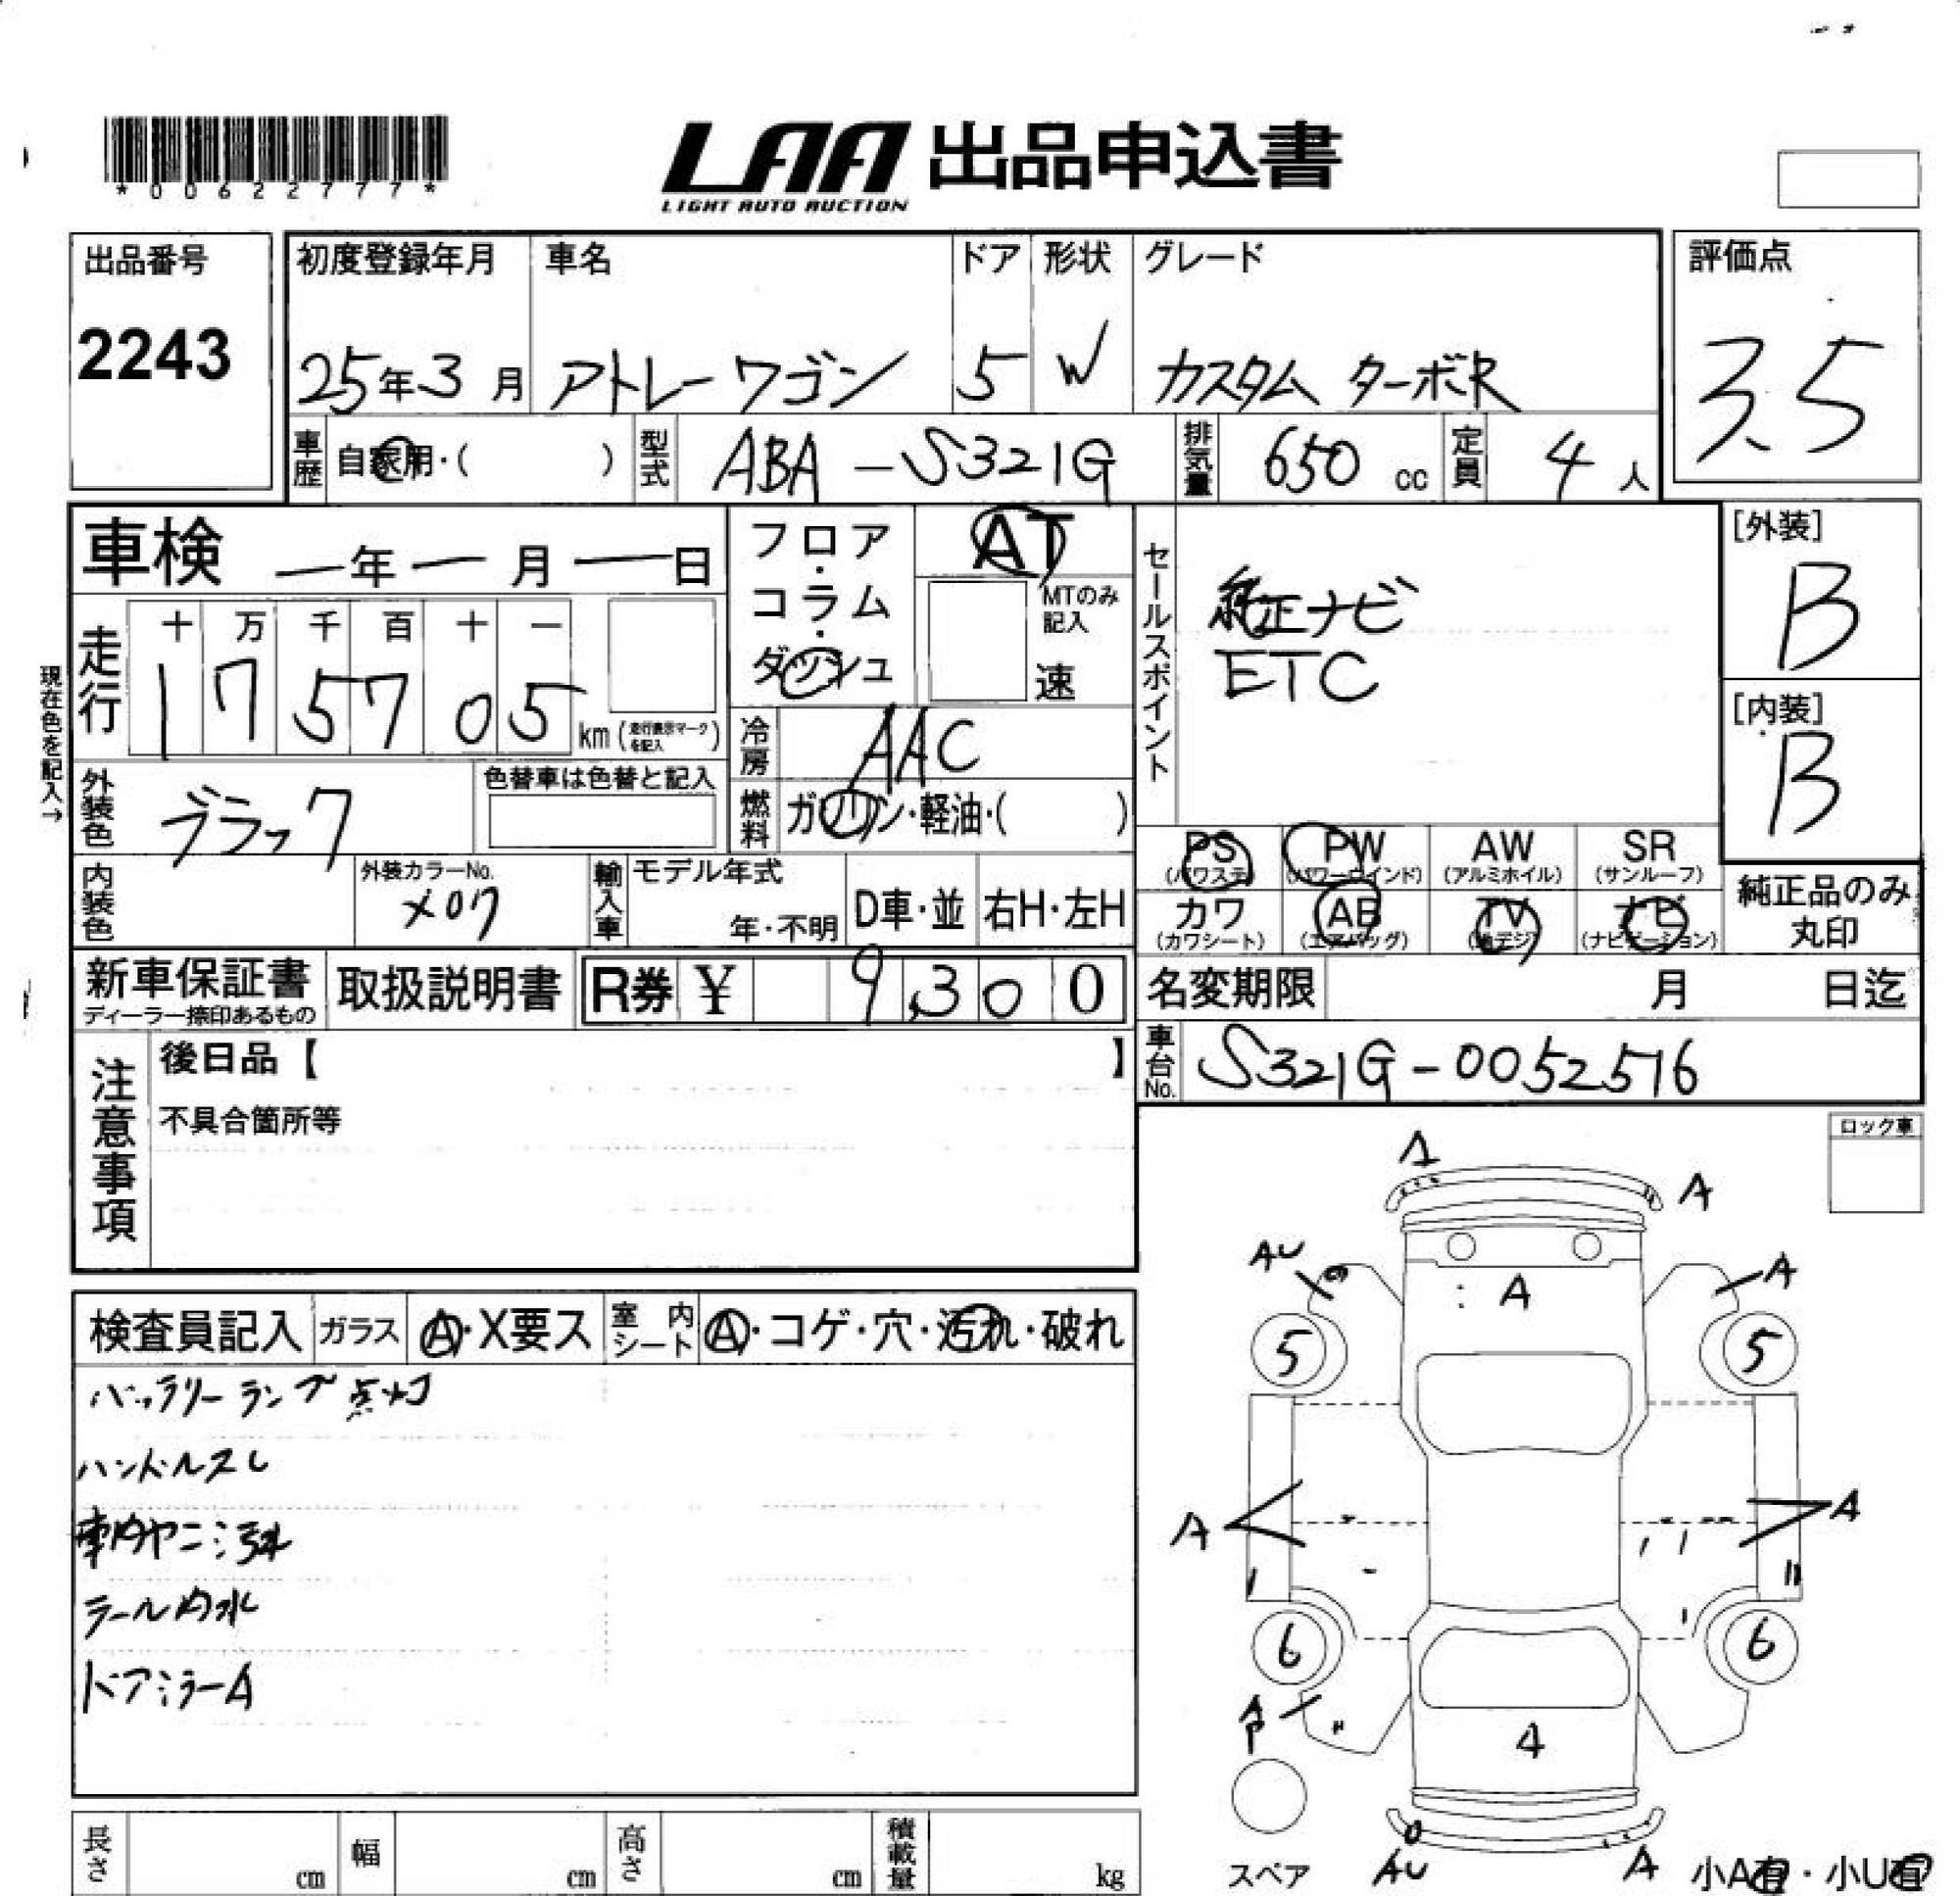 *00622777*
LAA 出品申込書
LIGHT AUTO AUCTION
出品番号
2243
初度登録年月
25年3月
車名
アトレーワゴン
ドア
5
形状
W
グレード
カスタム ターボR
評価点
3.5
車歴 自家用・( )
型式 ABA-S321G
排気量 650 cc
定員 4 人
車検 ー年ー月ー日
フロア・コラム・ダッシュ
AT
MTのみ記入
速
セールスポイント
純正ナビ
ETC
[外装]
B
[内装]
B
現在色を記入→
走行
十 万 千 百 十 一
1 7 5 7 0 5 km (走行表示マークを記入)
冷房 AAC
燃料 ガソリン・軽油・( )
外装色 ブラック
色替車は色替と記入
内装色
外装カラーNo.
X07
輸入車
モデル年式
年・不明
D車・並
右H・左H
PS (パワステ)
PW (パワーウインド)
AW (アルミホイル)
SR (サンルーフ)
カワ (カワシート)
AB (エアバッグ)
TV (地デジ)
ナビ (ナビゲーション)
純正品のみ
丸印
新車保証書
ディーラー捺印あるもの
取扱説明書
R券 ¥ 9,300
名変期限 月 日迄
車台No. S321G-0052516
注意事項
後日品【 】
不具合箇所等
ロック車
検査員記入
ガラス Ⓐ・X要ス
室内シート Ⓐ・コゲ・穴・汚れ・破れ
バッテリーランプ点灯
ハンドルスレ
車内ヤニ汚れ
テール内水
ドアミラーA
A
A
AU
A
A
5
5
A
A
6
6
AP
A
AU
A
スペア
小A有・小U有
長さ cm
幅 cm
高さ cm
積載量 kg